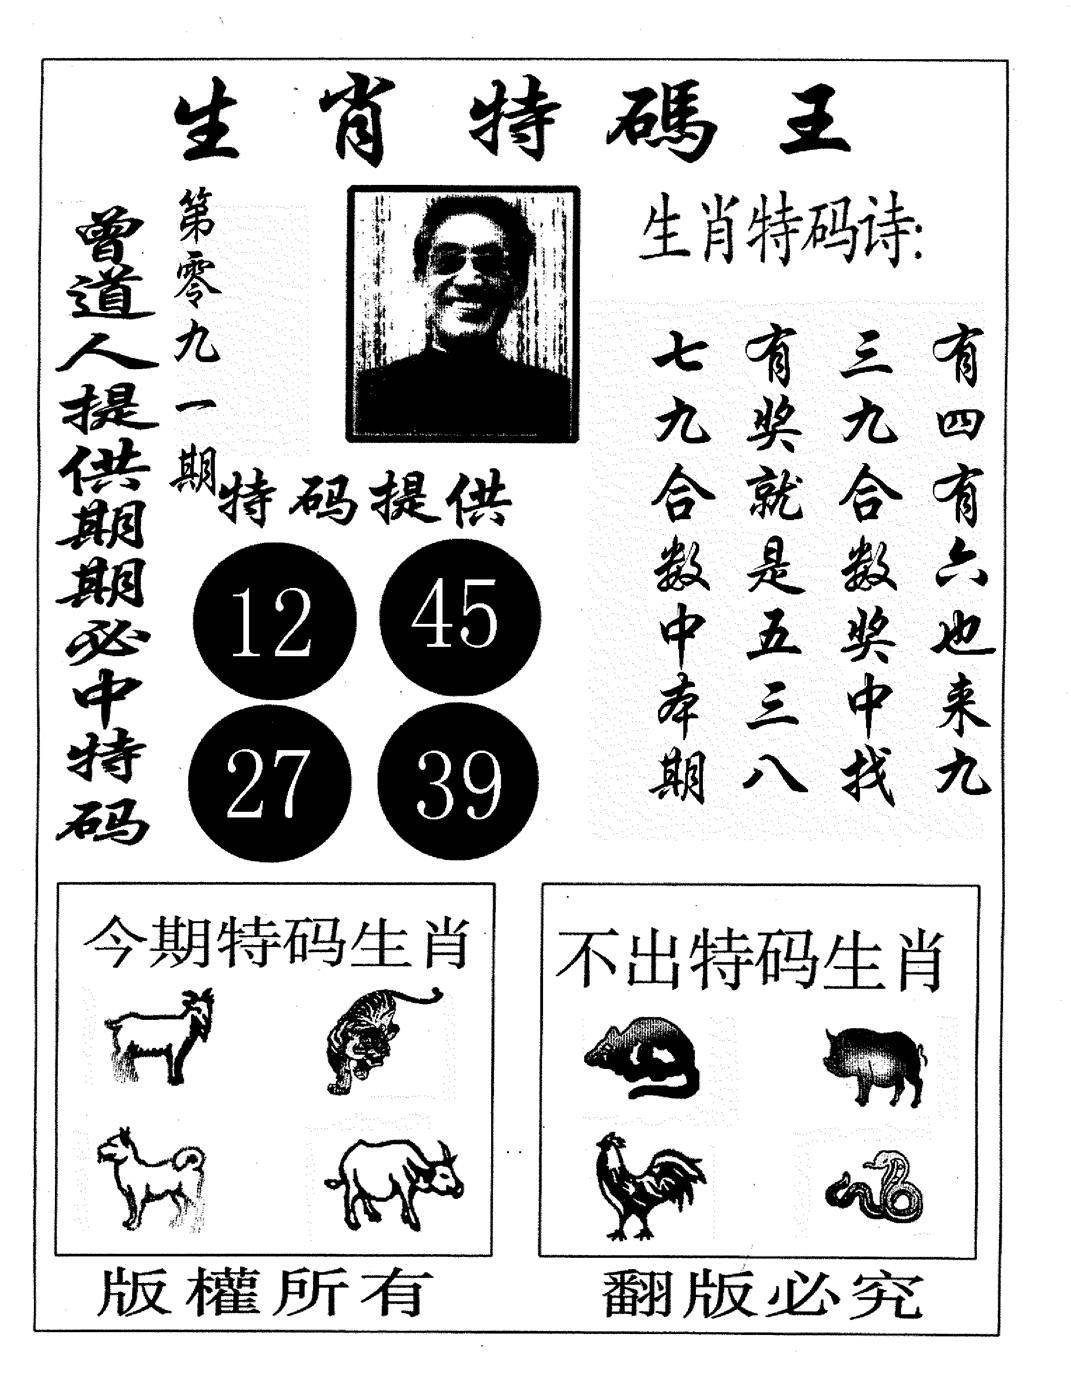 生肖特碼王
曾道人提供期期必中特码
第零九一期
生肖特码诗:
有四有六也来九
三九合数奖中找
有奖就是五三八
七九合数中本期
特码提供
12 45
27 39
今期特码生肖
不出特码生肖
版權所有
翻版必究